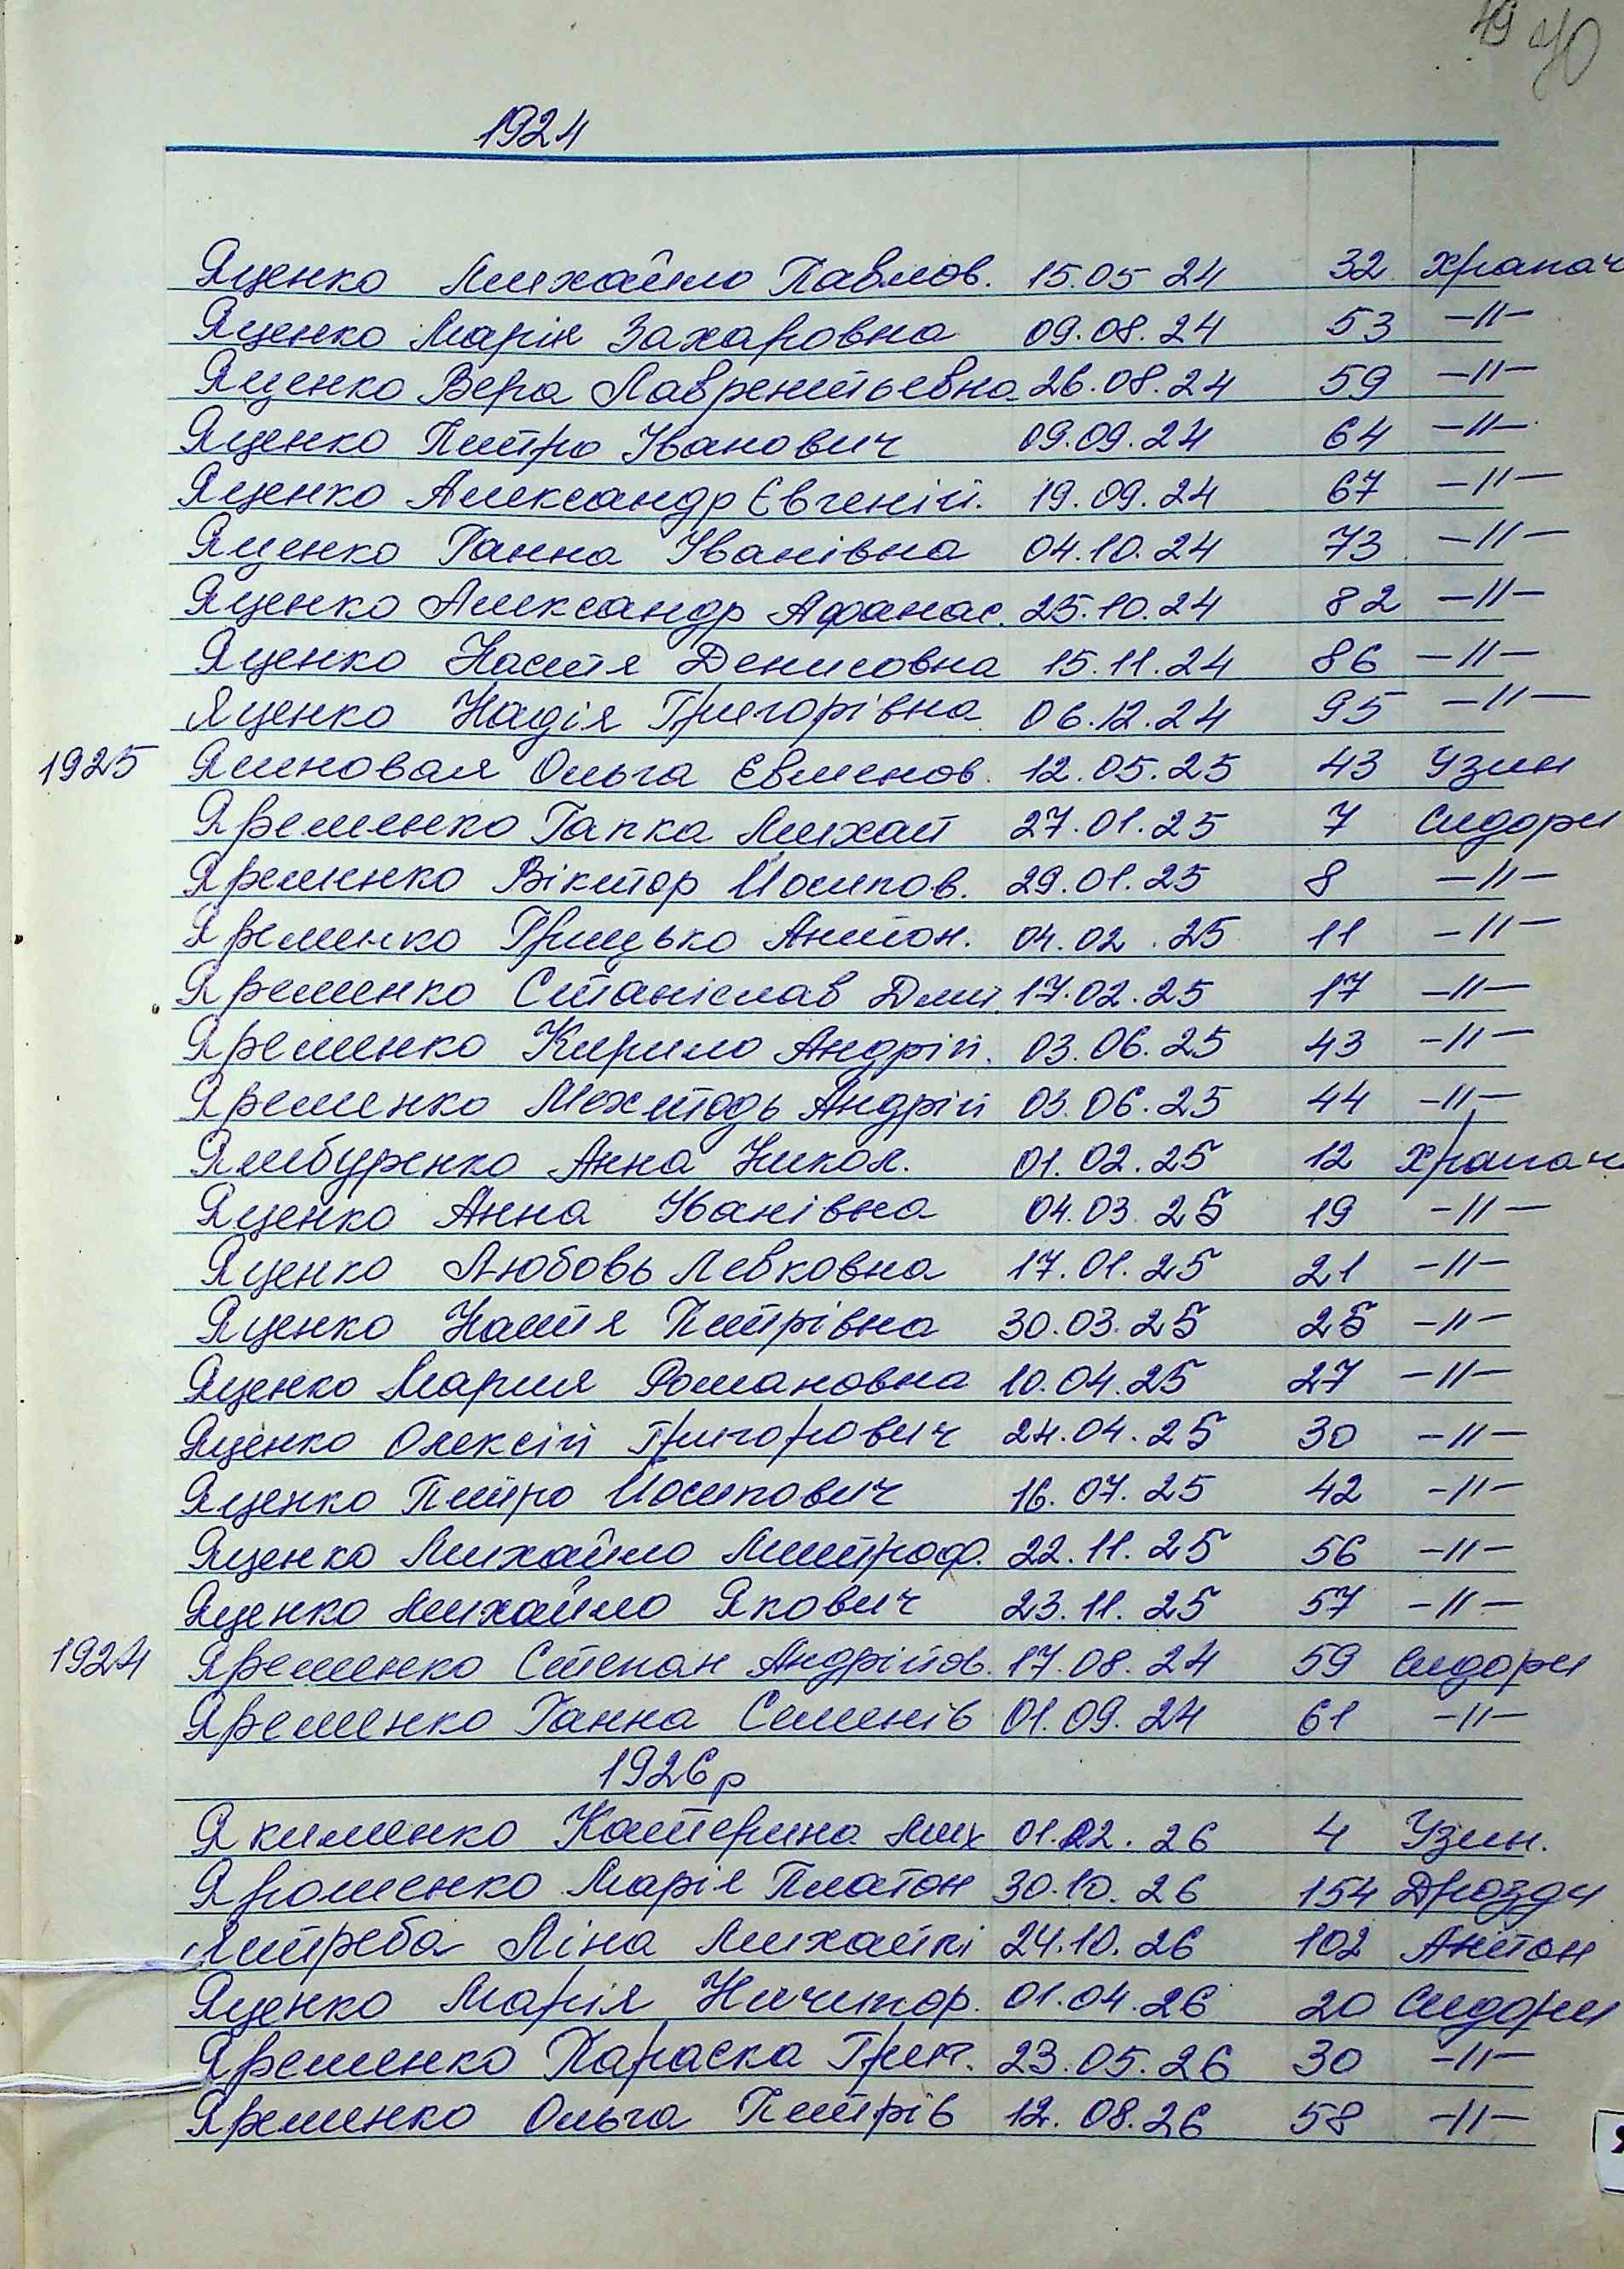 49 40
1924
Яценко Михайло Павлов. 15.05 24 32 Храпач
Яценко Марія Захаровна 09.08.24 53 -"-
Яценко Вера Лаврентьевна 26.08.24 59 -"-
Яценко Питро Іванович 09.09.24 64 -"-
Яценко Александр Євгеній. 19.09.24 67 -"-
Яценко Ганна Іванівна 04.10.24 73 -"-
Яценко Александр Афанас. 25.10.24 82 -"-
Яценко Настя Денисовна 15.11.24 86 -"-
Яценко Надія Григорівна 06.12.24 95 -"-
1925 Ялиновая Ольга Євменов. 12.05.25 43 Узин
Яременко Гапка Михай 27.01.25 7 Сидори
Яременко Віктор Йосипов. 29.01.25 8 -"-
Яременко Грицько Антон. 04.02.25 11 -"-
Яременко Станіслав Дми. 17.02.25 17 -"-
Яременко Кирило Андрій. 03.06.25 43 -"-
Яременко Мехтодь Андрій 03.06.25 44 -"-
Ямбуренко Анна Никол. 01.02.25 12 Храпач
Яценко Анна Іванівна 04.03.25 19 -"-
Яценко Любовь Левковна 17.01.25 21 -"-
Яценко Настя Питрівна 30.03.25 25 -"-
Яценко Мария Романовна 10.04.25 27 -"-
Яценко Олексій Григорович 24.04.25 30 -"-
Яценко Питро Йосипович 16.07.25 42 -"-
Яценко Михайло Митроф. 22.11.25 56 -"-
Яценко Михайло Якович 23.11.25 57 -"-
1924 Яременко Степан Андрійов. 17.08.24 59 Сидори
Яременко Ганна Семенів 01.09.24 61 -"-
1926р
Якименко Катерина Мих 01.02.26 4 Узин.
Яроменко Марія Платон 30.10.26 154 Дрозди
Яструба Ліна Михайлі 24.10.26 102 Антон
Яценко Марія Ничипор. 01.04.26 20 Сидори
Яременко Параска Григ. 23.05.26 30 -"-
Яременко Ольга Питрів 12.08.26 58 -"-